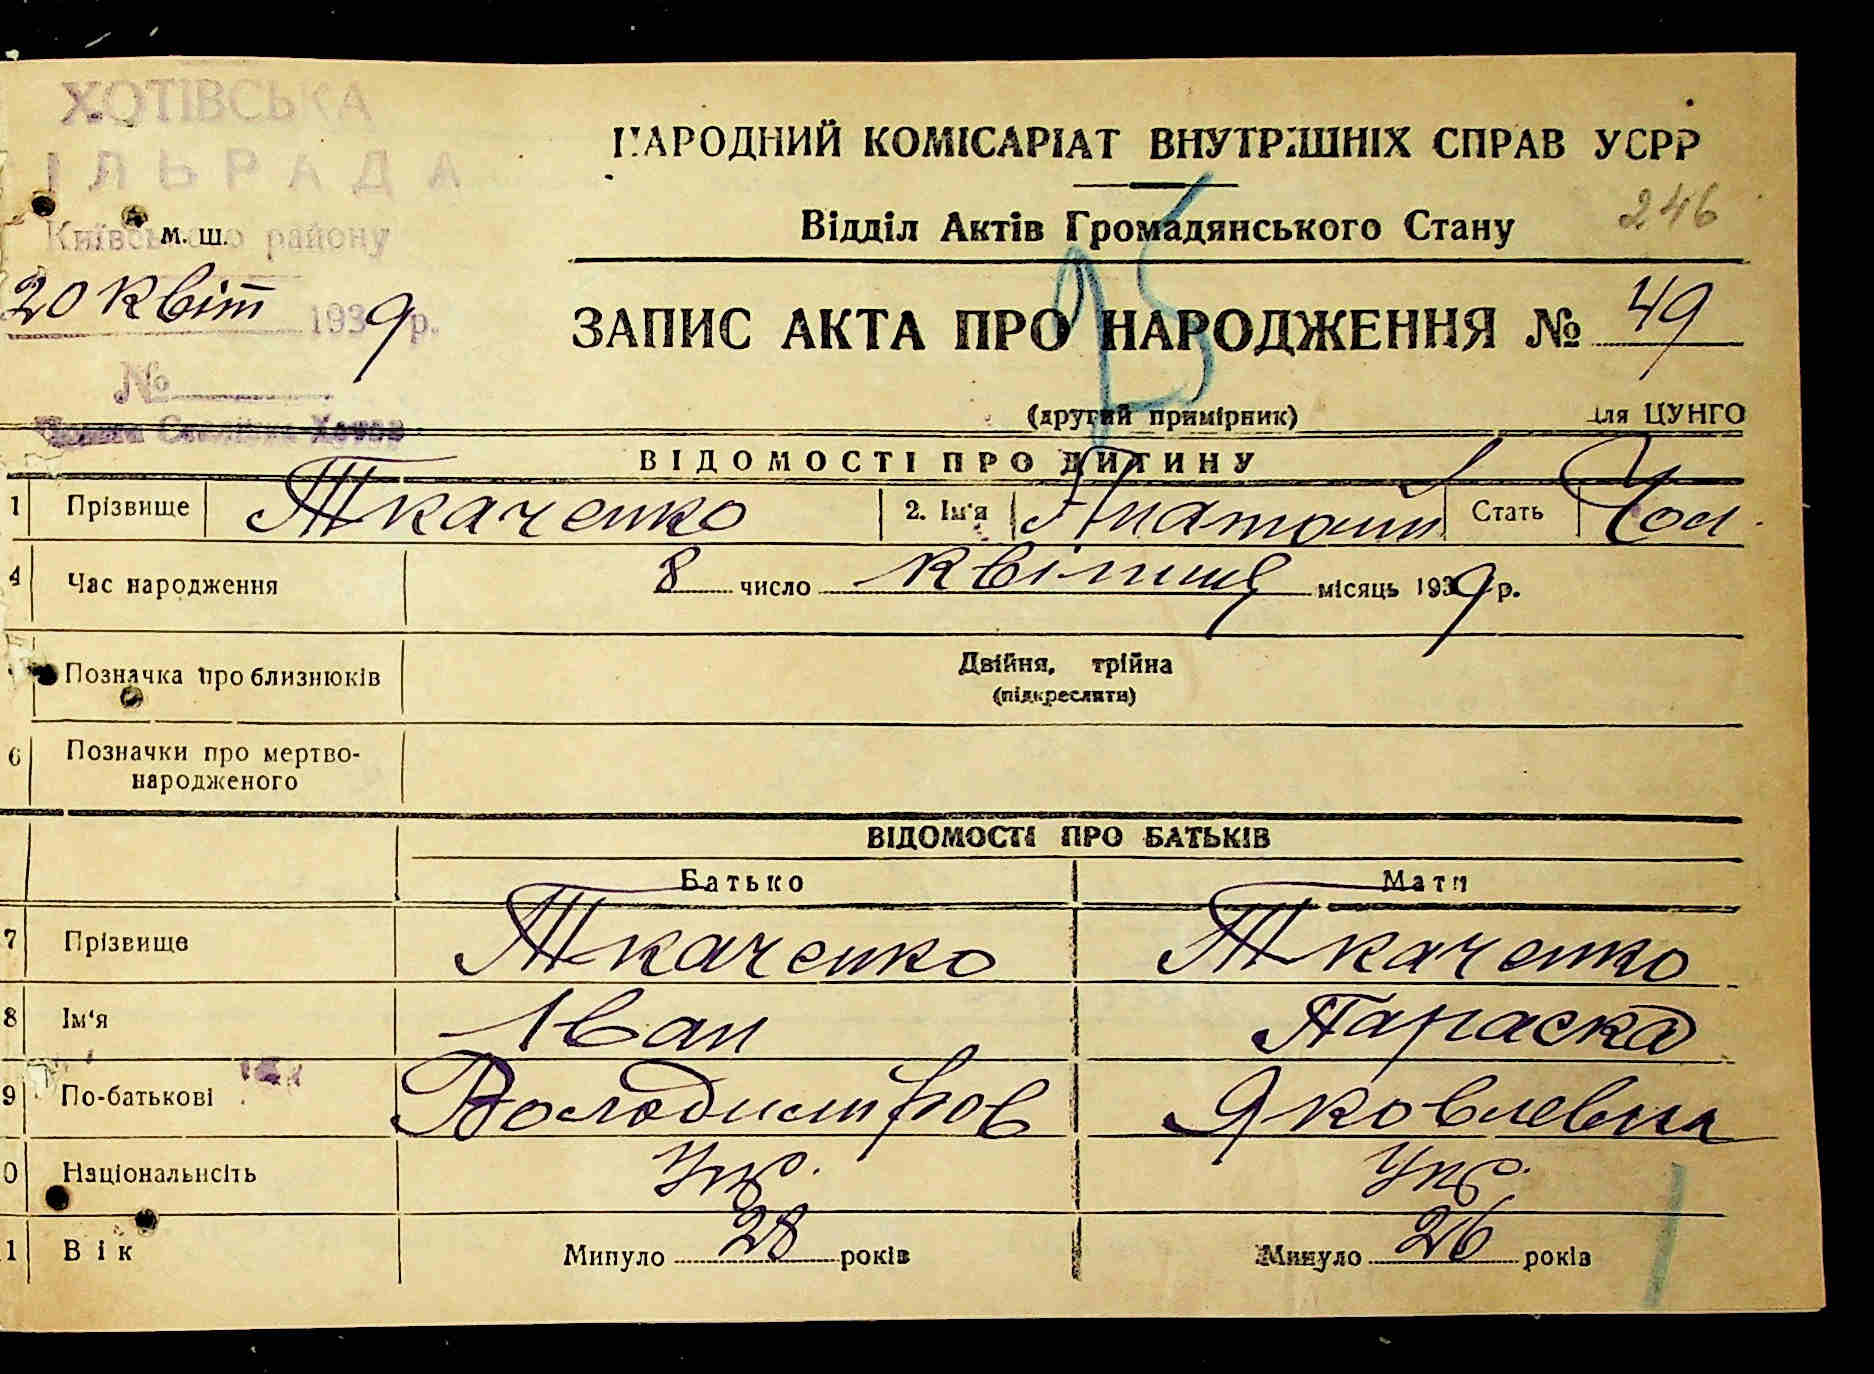 ХОТІВСЬКА
ІЛЬРАДА
Київського району
м. ш.
20 Квіт 1939 р.
№
НАРОДНИЙ КОМІСАРІАТ ВНУТРІШНІХ СПРАВ УСРР
246
Відділ Актів Громадянського Стану
ЗАПИС АКТА ПРО НАРОДЖЕННЯ № 49
25
(другий примірник) для ЦУНГО
ВІДОМОСТІ ПРО ДИТИНУ
1 Прізвище Ткаченко 2. Ім'я Анатолій Стать Чол.
4 Час народження 8 число Квітня місяць 1939 р.
Позначка про близнюків Двійня, трійна
(підкреслити)
6 Позначки про мертво-
народженого
ВІДОМОСТІ ПРО БАТЬКІВ
Батько Мати
7 Прізвище Ткаченко Ткаченко
8 Ім'я Іван Параска
9 По-батькові Володимиров Яковлевна
0 Національнсіть Укр. Укр.
1 Вік Минуло 28 років Минуло 26 років